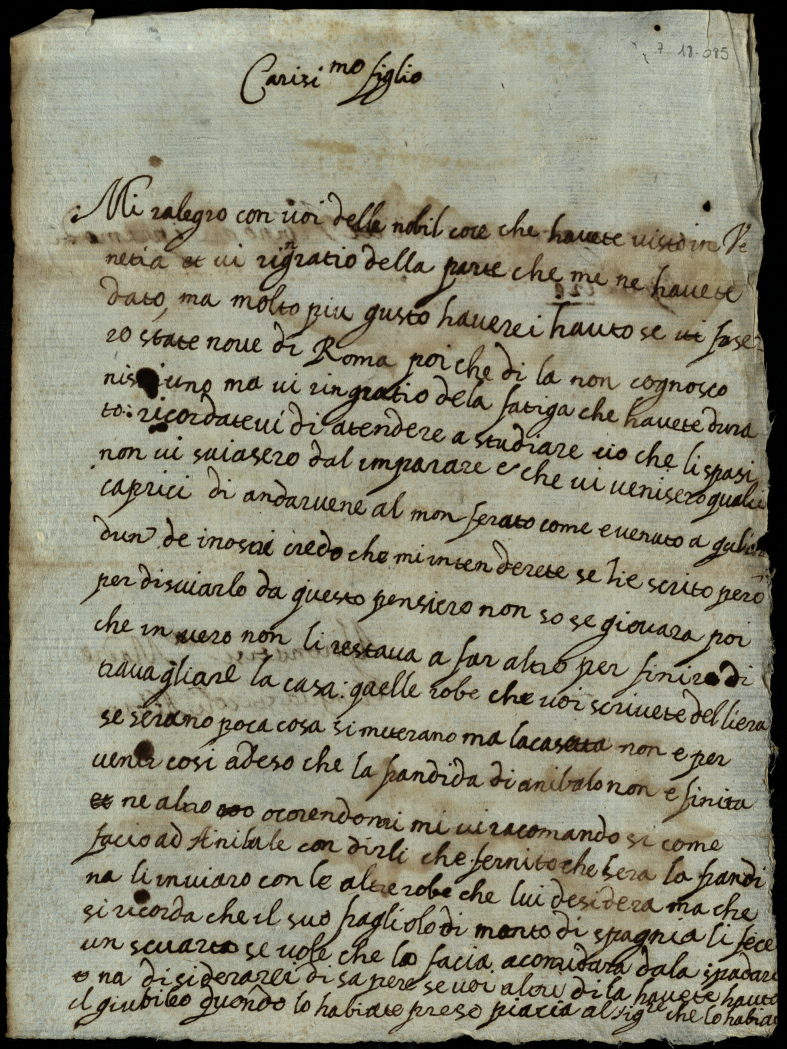 7 18.085
Carisi mo figlio
Mi ralegro con voi delle nobil cose che havete visto in Ve
netia et vi ringratio della parte che me ne havete
dato, ma molto piu gusto haverei hauto se vi fuse
ro state nove di Roma poi che di la non cognosco
nisuno ma vi ringratio dela fatiga che havete dura
to: ricordatevi di atendere a studiare cio che li spasi
non vi sviasero dal imparare e che vi venisero qualci
caprici di andarvene al mon ferato come e venuto a
dun de inostri credo che mi intenderete se lie scrito pero
per disviarlo da questo pensiero non so se giovara poi
che in vero non li restava a far altro per finire di
travagliare la casa: quelle robe che voi scrivete del liera
se serano poca cosa si meterano ma la casetta non e per
venir cosi adeso che la fandida di anibalo non e finita
ne altro ocorendomi mi vi racomando si come
facio ad Anibale con dirli che fernito che sera la fandi
na li inviaro con le altre robe che lui desidera ma che
si ricorda che il suo fagliolo di manto di spagnia li fece
un scuarto se vole che lo facia acomudara dala spadari
na disiderarei di sapere se voi altri di la havete hauto
il giubileo quando lo habiate preso piacia al sigre che lo habiat